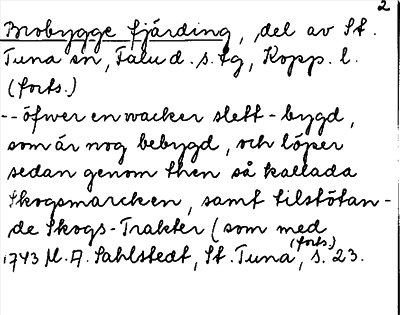 2
Brobygge fjärding, del av St.
Tuna sn, Falu d. s. fg, Kopp. l.
(forts.)
-- öfwer en wacker slett-bygd,
som är nog bebygd, och löper
sedan genom then så kallada
Skogsmarcken, samt tilstötan-
de Skogs-Trakter (som med
(forts)
1743 M. A. Sahlstedt, St. Tuna, s. 23.